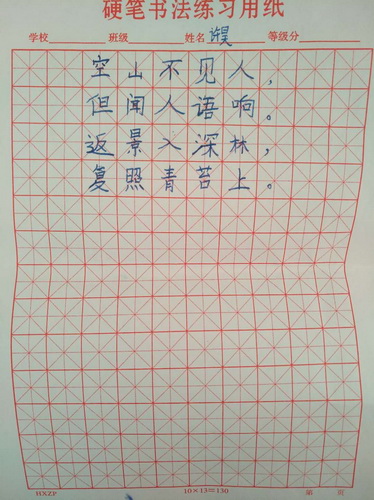 硬笔书法练习用纸
学校 班级 姓名 许昊 等级分
空山不见人，
但闻人语响。
返景入深林，
复照青苔上。
HXZP 10×13=130 第 页